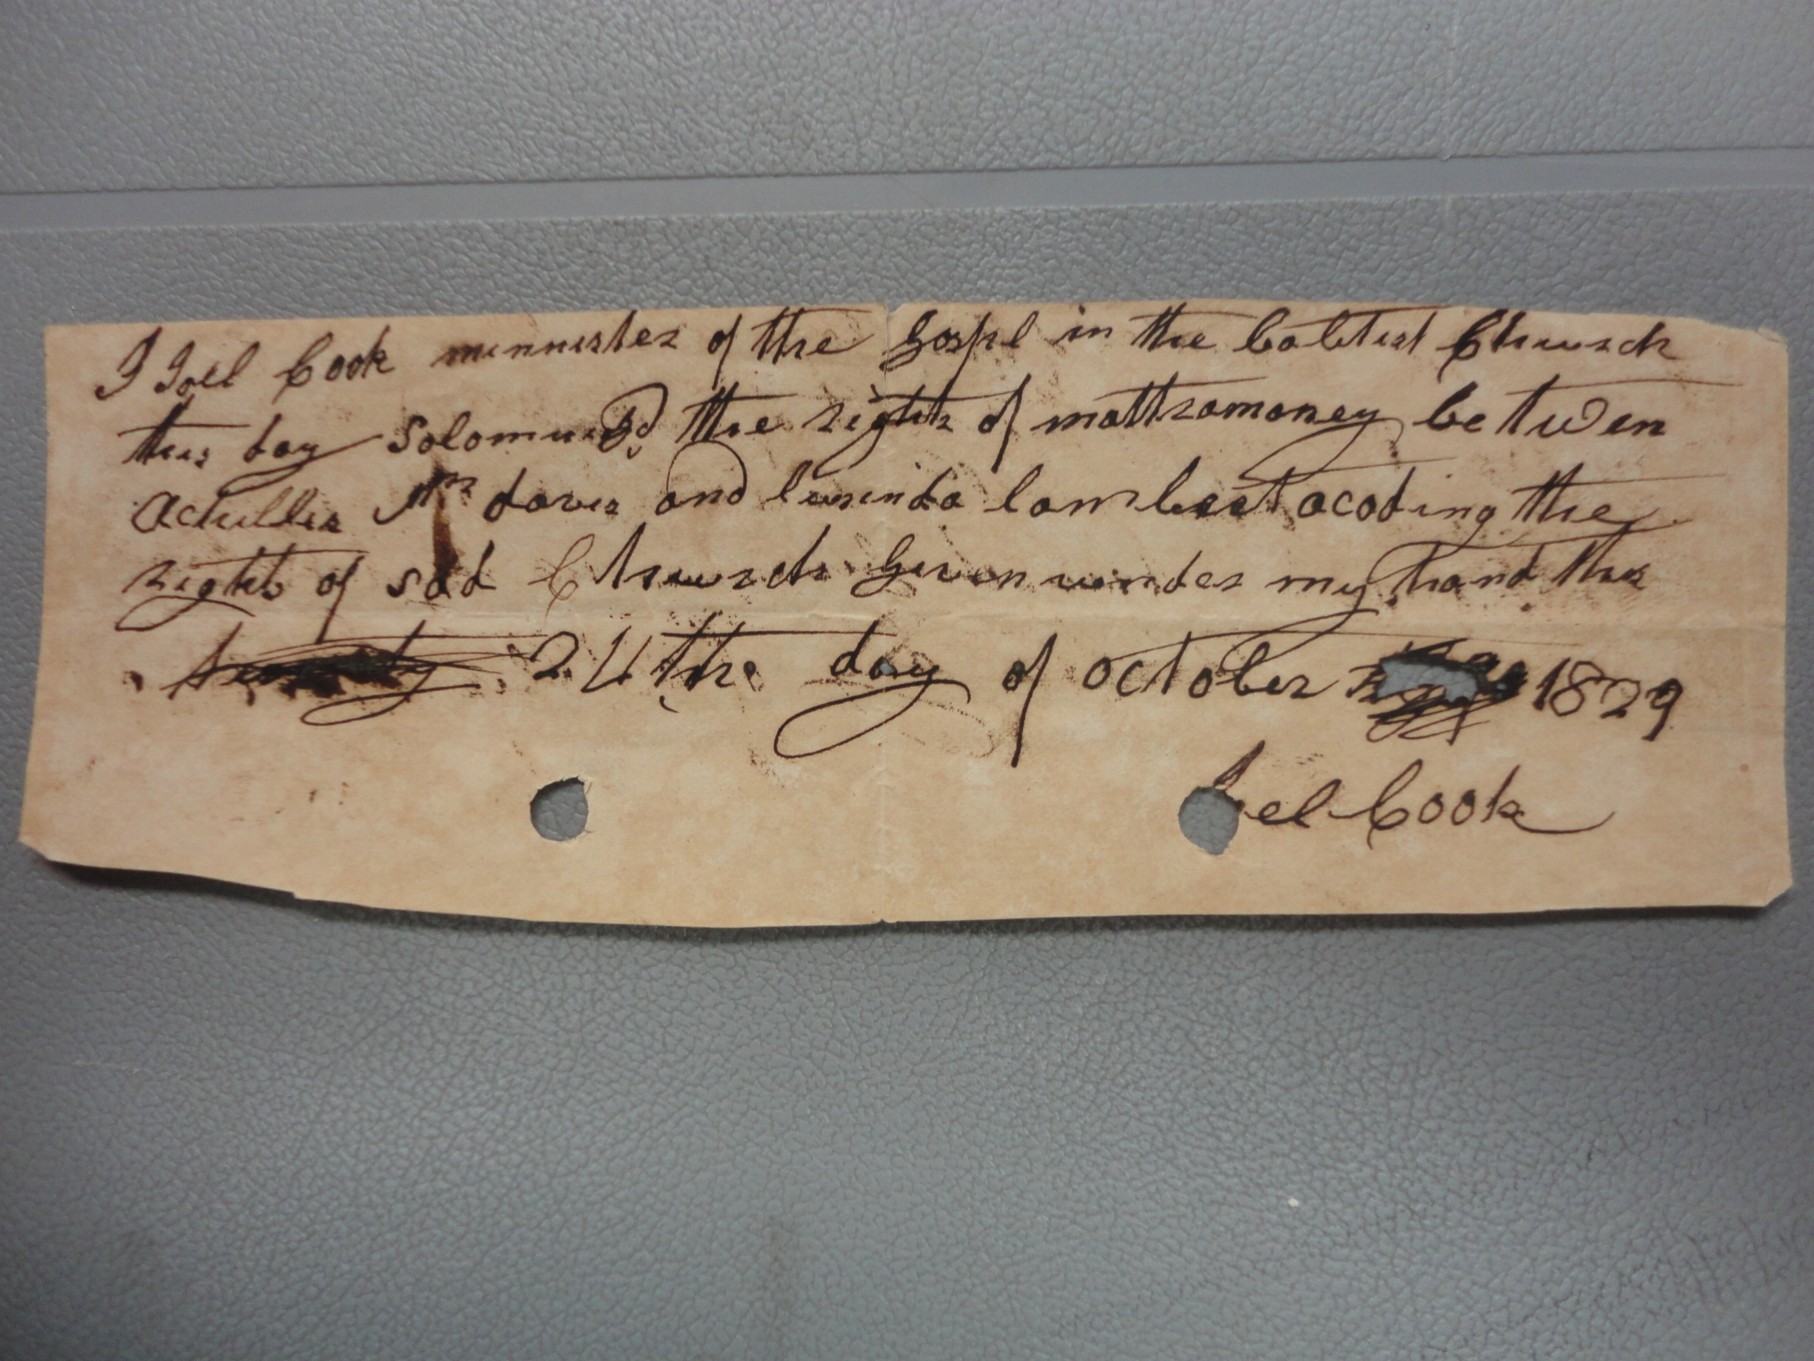 I Joel Cook minnister of the gospl in the babtist Church
this day Solomnised the rights of mattramoney betwen
Achilles Mc davis and lusinda lambert acoding the
rights of sad Church given under my hand this
24 the day of october 1829
Joel Cook